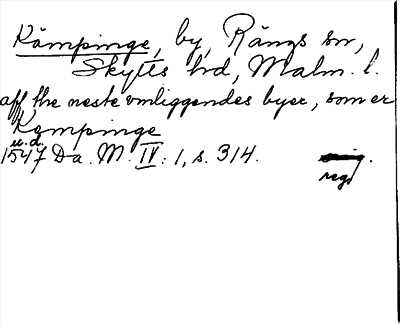 Kämpinge, by, Rängs sn,
Skytts hd, Malm. l.
aff the neste omliggendes byer, som er
Kempinge
u.d.
1547 Da. M. IV: 1, s. 314.
orig.
regd